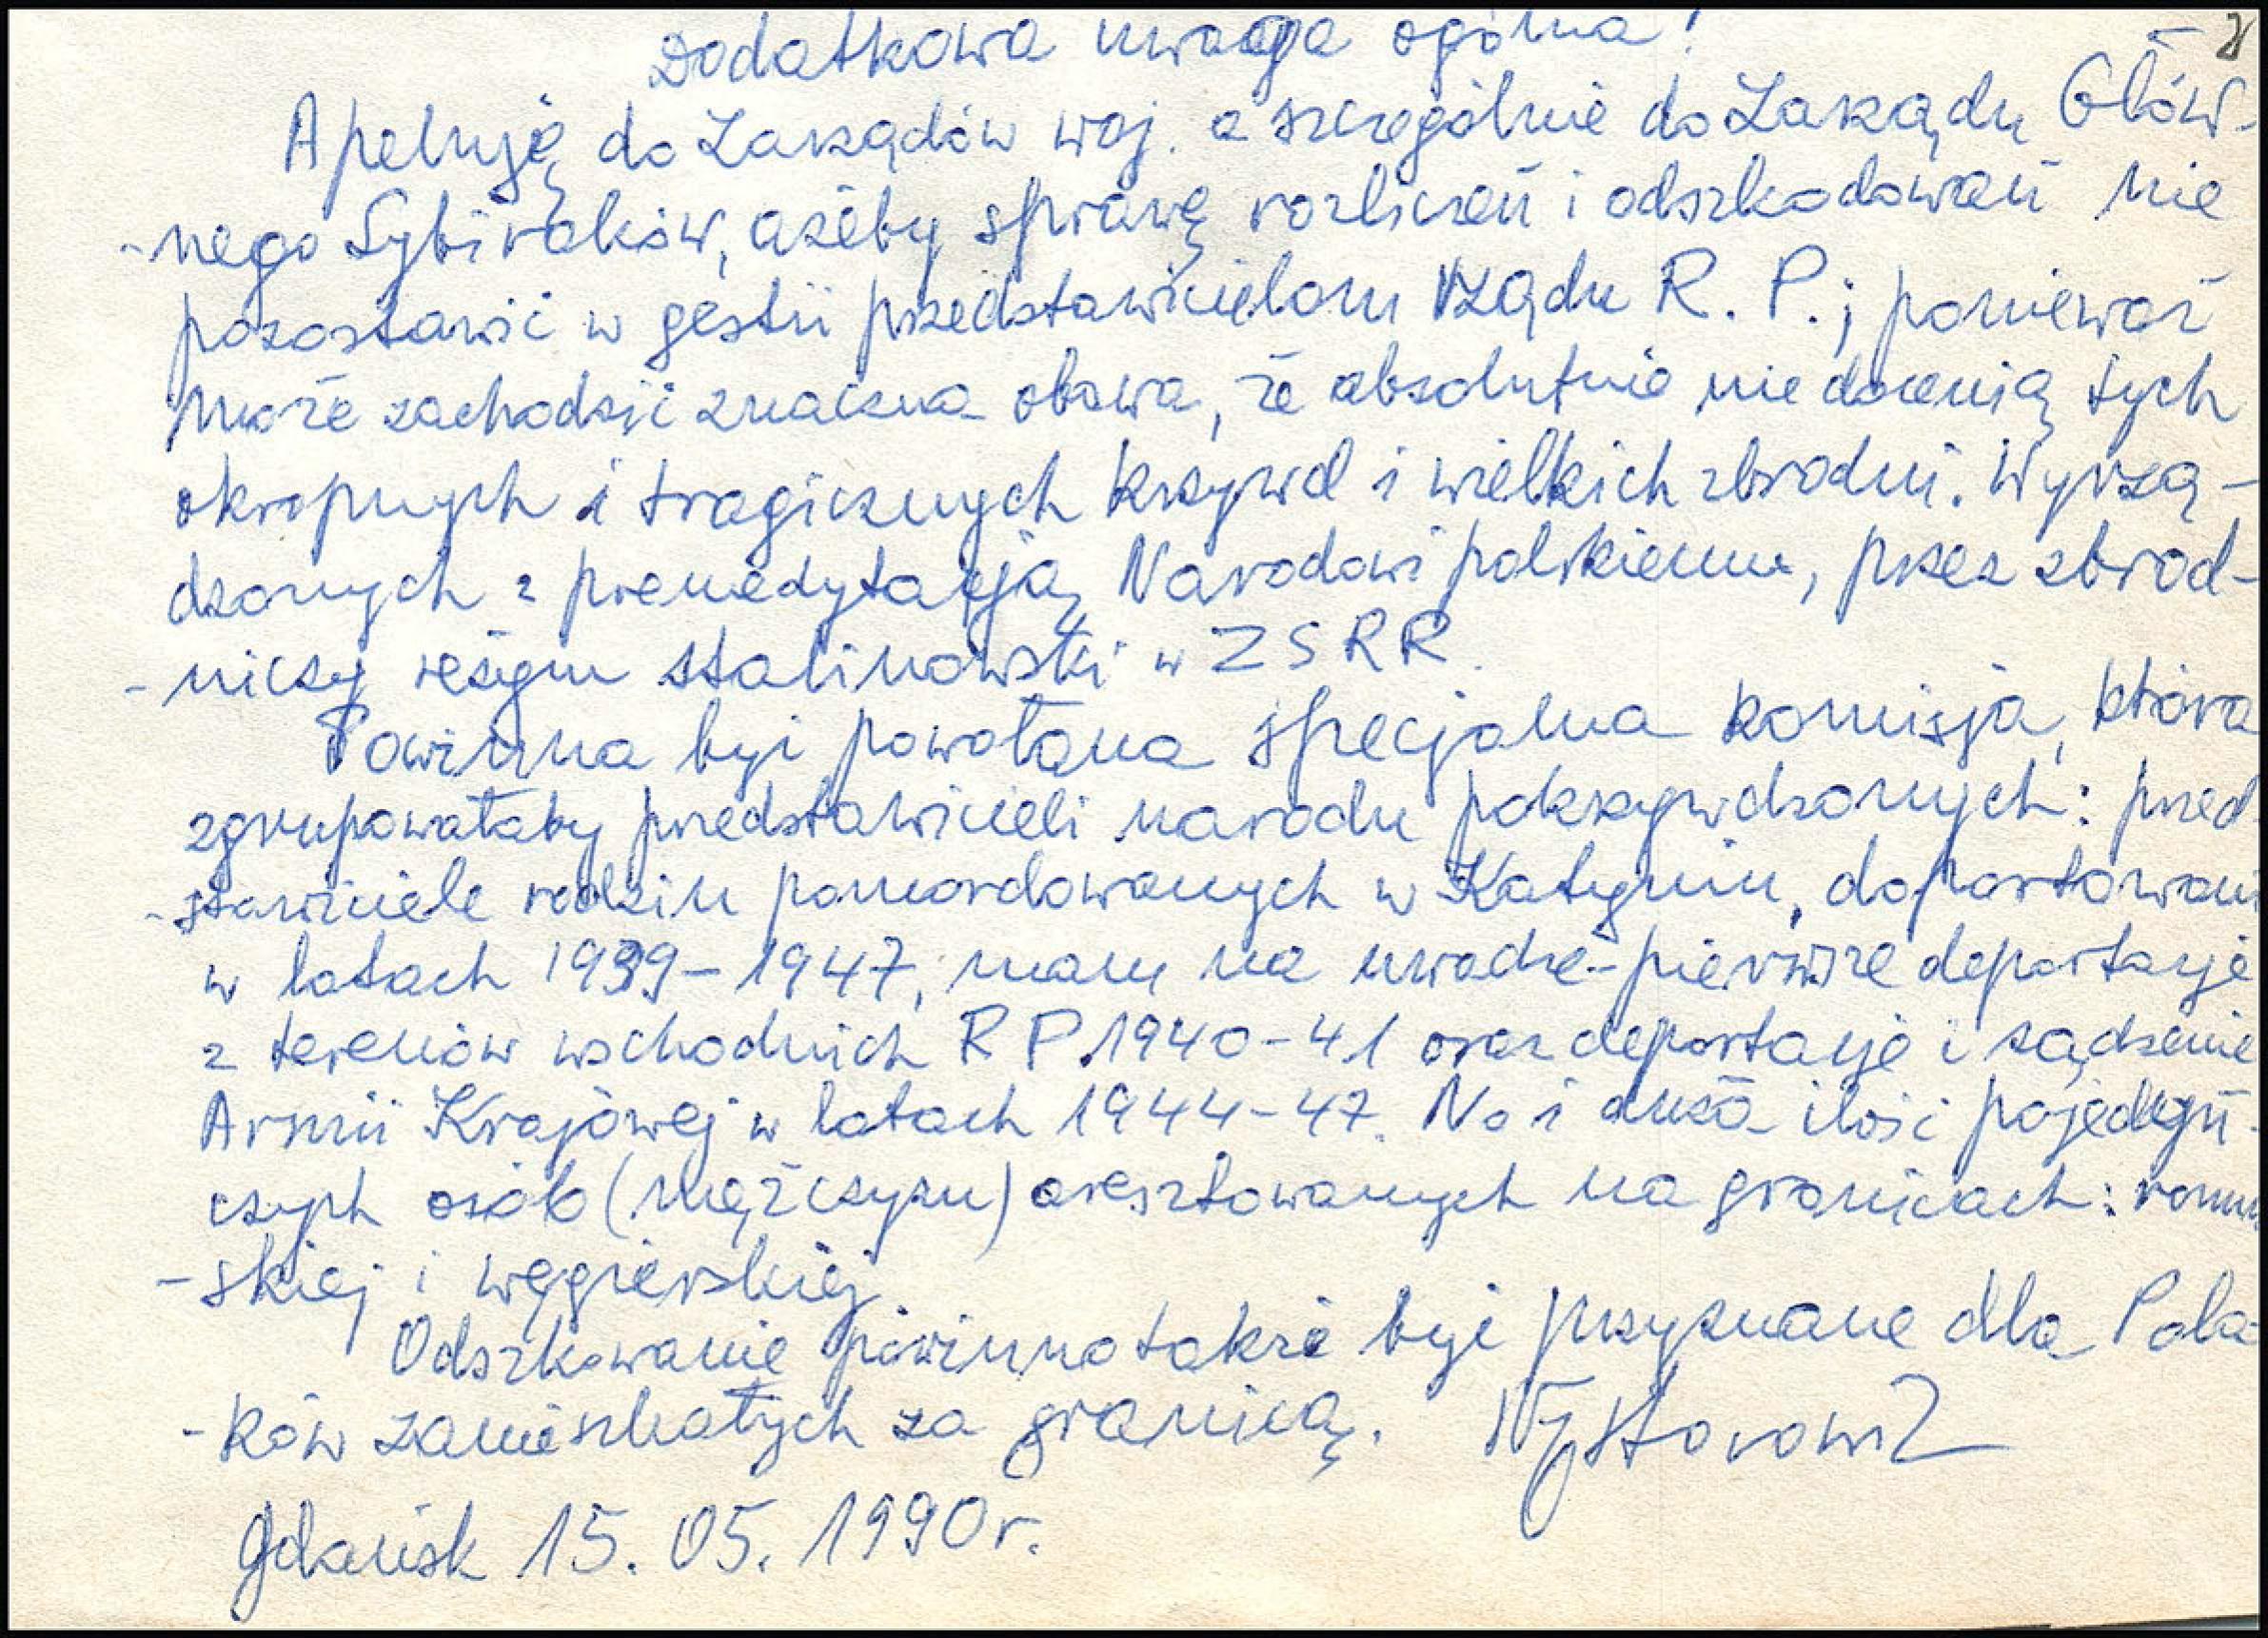 Dodatkowa uwaga ogólna!
Apeluję do Zarządów woj. a szczególnie do Zarządu Głów-
-nego Sybiraków, ażeby sprawę rozliczeń i odszkodowań nie
pozostawić w gestii przedstawicielom rządu R. P.; ponieważ
może zachodzić znaczna obawa, że absolutnie nie docenią tych
okropnych i tragicznych krzywd i wielkich zbrodni. Wyrzą-
dzonych z premedytacją Narodowi polskiemu, przez zbrod-
-niczy reżym stalinowski w ZSRR.
Powinna być powołana specjalna komisja, która
zgrupowałaby przedstawicieli narodu pokrzywdzonych: przed-
-stawiciele rodzin pomordowanych w Katyniu, doportowani
w latach 1939-1947, mam na uwadze-pierwsze deportacje
z terenów wschodnich RP. 1940-41 oraz deportacje i sądzenie
Armii Krajowej w latach 1944-47. No i duża ilość pojedyń-
czych osób (mężczyzn) aresztowanych na granicach: rumu
-skiej i węgierskiej.
Odszkowanie powinno także być przyznane dla Pola-
-ków zamieszkałych za granicą.
Gdańsk 15. 05. 1990r.